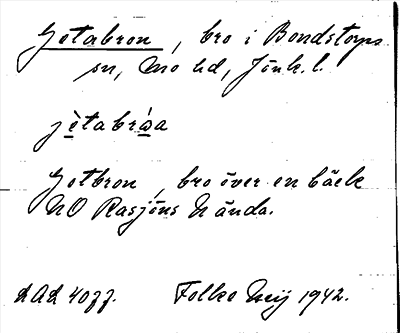 Getabron, bro i Bondstorps
sn, Mo hd, Jönk. l.
jètabrὼa
Getbron, bro över en bäck
NO Rasjöns N ända.
LAL 4077.    Folke Meij 1942.